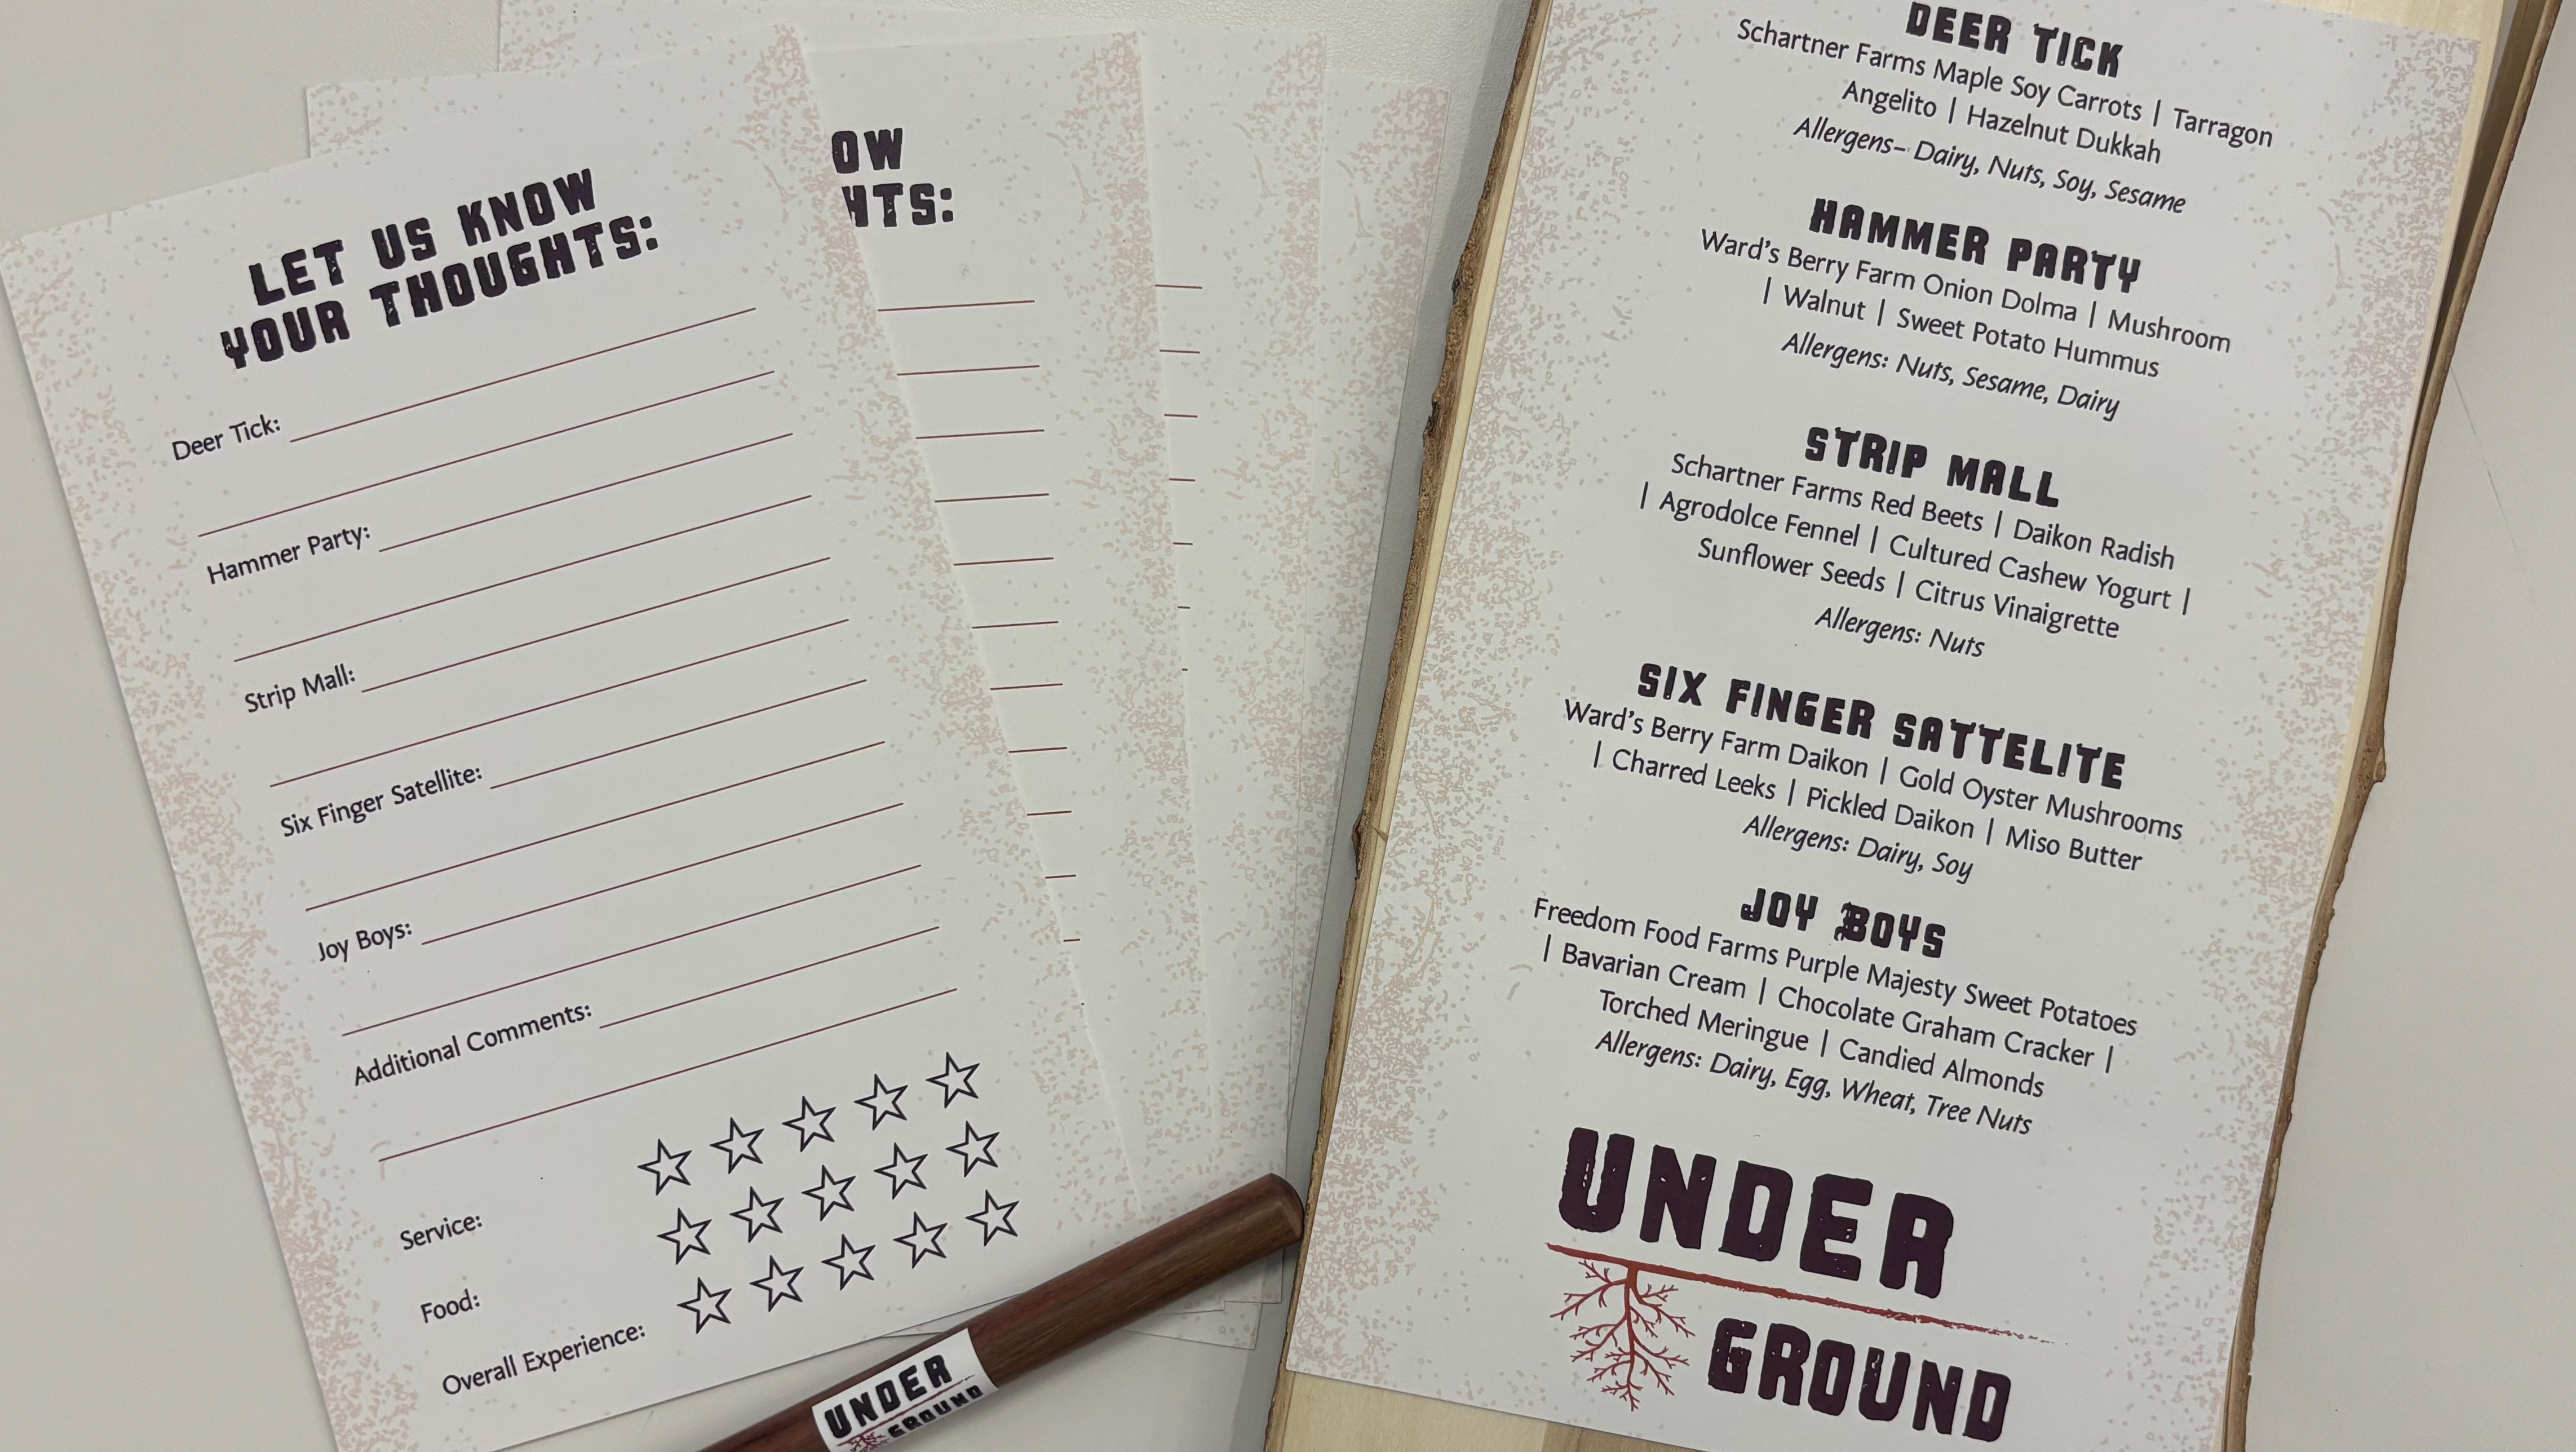 LET US KNOW
YOUR THOUGHTS:
Deer Tick:
Hammer Party:
Strip Mall:
Six Finger Satellite:
Joy Boys:
Additional Comments:
Service:
Food:
Overall Experience:
OW
HTS:
UNDER
GROUND
DEER TICK
Schartner Farms Maple Soy Carrots | Tarragon
Angelito | Hazelnut Dukkah
Allergens– Dairy, Nuts, Soy, Sesame
HAMMER PARTY
Ward's Berry Farm Onion Dolma | Mushroom
| Walnut | Sweet Potato Hummus
Allergens: Nuts, Sesame, Dairy
STRIP MALL
Schartner Farms Red Beets | Daikon Radish
| Agrodolce Fennel | Cultured Cashew Yogurt |
Sunflower Seeds | Citrus Vinaigrette
Allergens: Nuts
SIX FINGER SATTELITE
Ward's Berry Farm Daikon | Gold Oyster Mushrooms
| Charred Leeks | Pickled Daikon | Miso Butter
Allergens: Dairy, Soy
JOY BOYS
Freedom Food Farms Purple Majesty Sweet Potatoes
| Bavarian Cream | Chocolate Graham Cracker |
Torched Meringue | Candied Almonds
Allergens: Dairy, Egg, Wheat, Tree Nuts
UNDER
GROUND